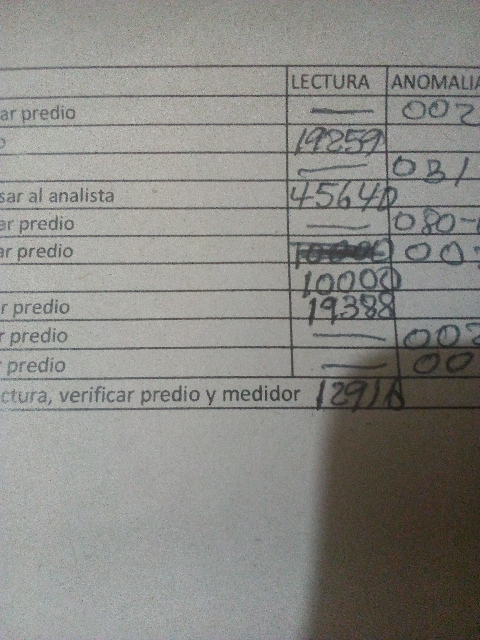 LECTURA ANOMALIA
ar predio — 002
o 19259
— 031
sar al analista 45640
ar predio — 080-
ar predio 00
10000
r predio 19388
r predio — 002
r predio — 00
ctura, verificar predio y medidor